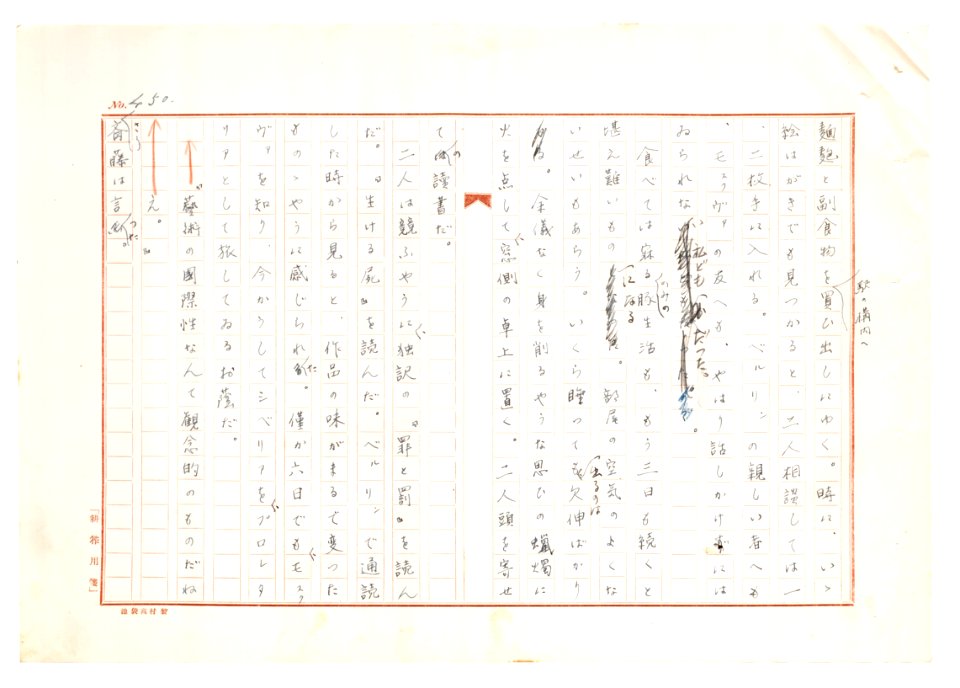 No. 450.
麵麭と副食物を買ひ出しにゆく。時に、いゝ
駅の構内へ
絵はがきでも見つかると、二人相談しては一
、二枚手に入れる。ベルリンの親しい者へも
、モスクヴァの友へも、やはり話しかけずには
ゐられない私どもだつた。
食べては寐る豚生活も、もう三日も続くと
堪え難いものになる。部屋の空気のよくな
いせいもあらう。いくら瞳つても欠伸ばかり
出るのは
る。余儀なく身を削るやうな思ひの蠟燭に
火を点して窓側の卓上に置く。二人頭を寄せ
ての読書だ。
二人は競ふやうに独訳の『罪と罰』を読ん
だ。『生ける屍』を読んだ。ベルリンで通読
した時から見ると、作品の味がまるで変つた
ものゝやうに感じられた。僅か六日でもモスク
ヴァを知り、今かうしてシベリアをプロレタ
リアとして旅してゐるお蔭だ。
「藝術の國際性なんて観念的のものだね
え。」
斎藤は言つた。
「新稿用箋」
製村衣袋淮